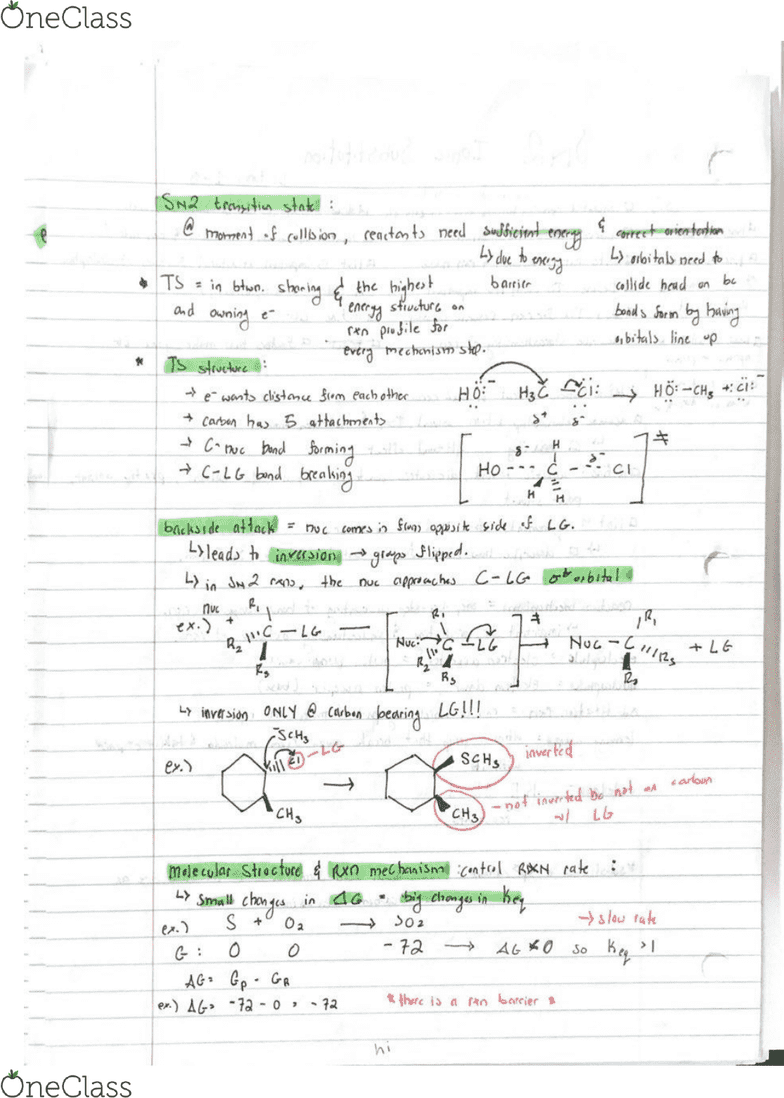 OneClass
SN2 transition state :
@ moment of collision, reactants need sufficient energy & correct orientation
↳ due to energy barrier
↳ orbitals need to collide head on bc bonds form by having orbitals line up
* TS = in btwn. sharing and owning e-
& the highest energy structure on rxn profile for every mechanism step.
* TS structure :
→ e- wants distance from each other
HÖ:⁻ H₃C –Cl: → HÖ:–CH₃ + :Cl:⁻
δ+ δ-
→ carbon has 5 attachments
→ C-nuc bond forming
→ C-LG bond breaking
[ HO --- C --- Cl ]‡
δ- H δ-
H H
backside attack = nuc comes in from opposite side of LG.
↳ leads to inversion → groups flipped.
↳ in SN2 rxns, the nuc approaches C-LG σ* orbital
ex.) nuc + R₁ R₂ C – LG R₃ — [ Nuc: R₁ R₂ C – LG R₃ ]‡ → Nuc – C R₁ R₂ R₃ + LG
↳ inversion ONLY @ carbon bearing LG!!!
ex.) ⁻SCH₃ Cl – LG CH₃ → SCH₃ inverted
CH₃ – not inverted bc not on carbon w/ LG
molecular structure & RXN mechanism : control RXN rate :
↳ small changes in ΔG = big changes in Keq
ex.) S + O₂ → SO₂ → slow rate
G : 0 0 -72 → ΔG < 0 so Keq >1
ΔG = Gp - GR
ex.) ΔG = -72 - 0 = -72 * there is a rxn barrier *
hi
OneClass